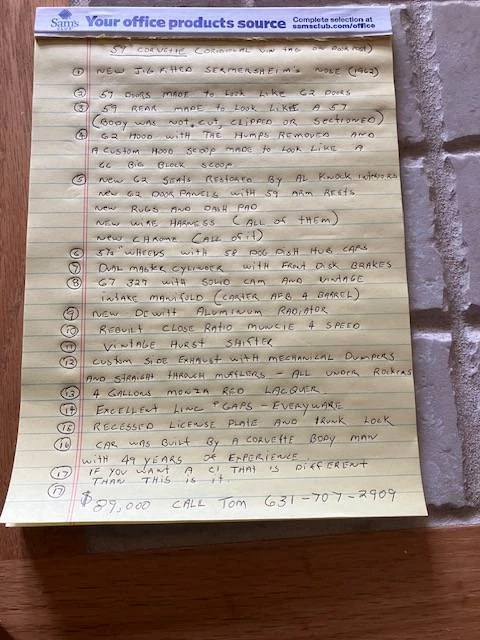 Sam's CLUB Your office products source Complete selection at
samsclub.com/office
59 CORVETTE (ORIGINAL VIN TAG ON DOOR POST)
① NEW JIG FITTED SERMERSHEIM'S NOSE (1962)
② 57 DOORS MADE TO LOOK LIKE 62 DOORS
③ 59 REAR MADE TO LOOK LIKE A 57
(BODY WAS NOT CUT, CLIPPED OR SECTIONED)
④ 62 HOOD WITH THE HUMPS REMOVED AND
A CUSTOM HOOD SCOOP MADE TO LOOK LIKE A
66 BIG BLOCK SCOOP
⑤ NEW 62 SEATS RESTORED BY AL KNOCK INTERIORS
NEW 62 DOOR PANELS WITH 59 ARM RESTS
NEW RUGS AND DASH PAD
NEW WIRE HARNESS (ALL OF THEM)
NEW CHROME (ALL OF IT)
⑥ 5½" WHEELS WITH 58 DOG DISH HUB CAPS
⑦ DUAL MASTER CYLINDER WITH FRONT DISK BRAKES
⑧ 67 327 WITH SOLID CAM AND VINTAGE
INTAKE MANIFOLD (CARTER AFB 4 BARREL)
⑨ NEW DEWITT ALUMINUM RADIATOR
⑩ REBUILT CLOSE RATIO MUNCIE 4 SPEED
⑪ VINTAGE HURST SHIFTER
⑫ CUSTOM SIDE EXHAUST WITH MECHANICAL DUMPERS
AND STRAIGHT THROUGH MUFFLERS - ALL UNDER ROCKERS
⑬ 4 GALLONS MONZA RED LACQUER
⑭ EXCELLENT LINE & GAPS - EVERYWARE
⑮ RECESSED LICENSE PLATE AND TRUNK LOCK
⑯ CAR WAS BUILT BY A CORVETTE BODY MAN
WITH 49 YEARS OF EXPERIENCE
⑰ IF YOU WANT A C1 THAT IS DIFFERENT
THAN THIS IS IT.
⑰
$89,000 CALL TOM 631-707-2909